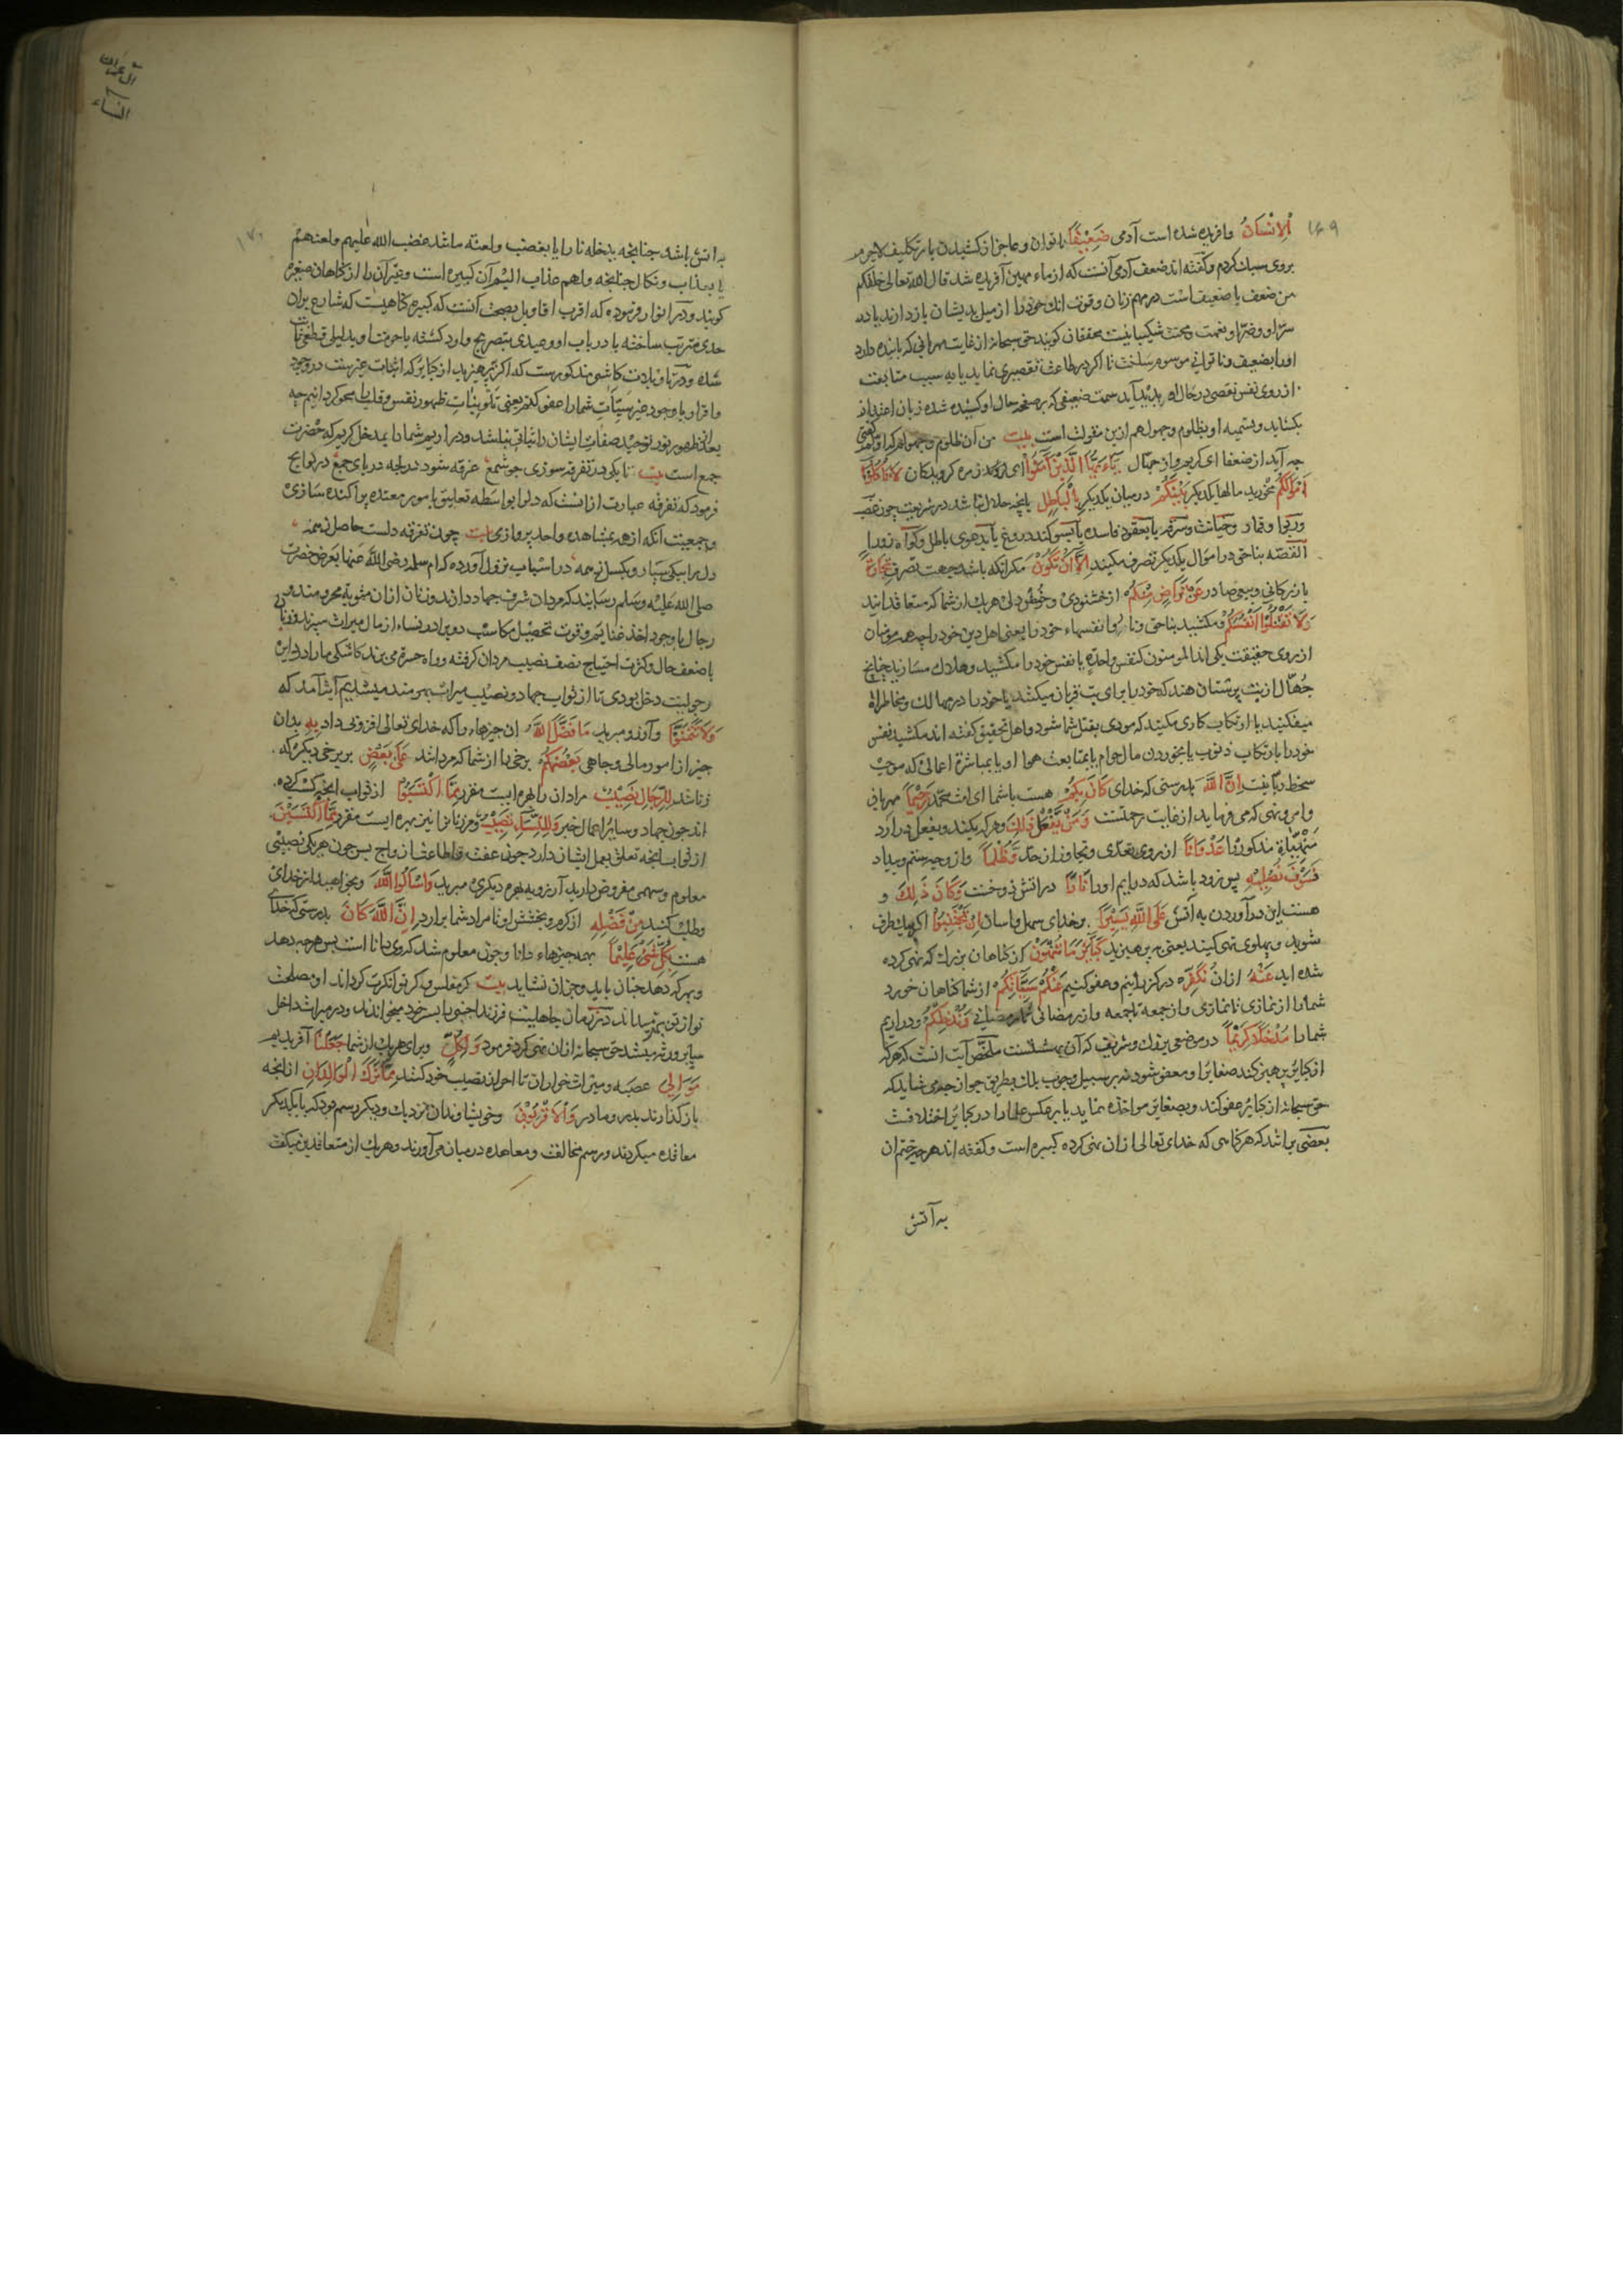 ۱۶۹
الْاِنْسَانُ وافریده شده است آدمی ضَعِيْفًا ناتوان وعاجز از کشیدن بار تکلیف لاجرم
بروی سبك کردم وگفته اند ضعف آدمی آنست که از ماء مهین آفریده شد قال الله تعالی خلقکم
من ضعف یا ضعیف است در مهم زنان وقوت اندر خود را از میل بدیشان باز دارند یا در
سرّا وضرّا ونعمت ومحنت شکیبا نیست محققان کویند حق سبحانه از غایت مهربانی که با بنده دارد
اورا بضعیف وناتوانی موسوم ساخت تا اکر در طاعت تقصیری نماید یا به سبب متابعت
از روی نفس نقصی در حال او پدید آید سمت ضعیفی که بر صفحه حال او کشیده شده زبان اعتذار
بکشاید وتسمیه او بظلوم وجهول هم ازین مقولت است بیت من آن ظلوم وجهولم که اولم گفتی
چه آید از ضعفا ای کریم واز جهّال يٰٓاَيُّهَا الَّذِيْنَ اٰمَنُوْا ای زمره کرویدکان لَا تَاْكُلُوْٓا
اَمْوَالَكُمْ مخورید مالها یکدیکر بَيْنَكُمْ در میان یکدیکر بِالْبَاطِلِ بانچه حلال نباشد در شریعت چون غصب
وربوا وقمار وخیانت وسرقه یا بعقود فاسده یا بسوکند دروغ یا بدعوی باطل وکواه زور
القصّه بناحق در اموال یکدیکر تصرف مکنید اِلَّآ اَنْ تَكُوْنَ مکر انکه باشد جهت تصرف تِجَارَةً
بازرکانی وبیعی صادر عَنْ تَرَاضٍ مِّنْكُمْ از خشنودی وخوشدلی هر یك از شما که متعاقدانند
وَلَا تَقْتُلُوْٓا اَنْفُسَكُمْ ومکشید بناحق ونا روا نفسهاء خود را یعنی اهل دین خود را چه همه مؤمنان
از روی حقیقت یکی اند المومنون کنفس واحدة یا نفس خود را مکشید وهلاك مسازید چنانچ
جهّال از بت پرستان هند که خود را برای بت قربان میکنند یا خود را در مهالك ومخاطرات
میفکنید یا ارتکاب کاری مکنید که مودی بقتل شما شود واهل تحقیق کفته اند مکشید نفس
خود را بارتکاب ذنوب یا بخوردن مال حرام یا بمتابعت هوا او یا بمباشرة اعمالی که موجب
سخط ربّانیست اِنَّ اللّٰهَ بدرستی که خدای كَانَ بِكُمْ هست باشما ای امت محمّد رَحِيْمًا مهربانی
وامر ونهی که می فرماید از غایت رحمتست وَمَنْ يَّفْعَلْ ذٰلِكَ وهر که بکند وبفعل در ارد
منهیّات مذکور را عُدْوَانًا از روی تعدّی وتجاوز از حد وَّظُلْمًا واز وجه ستم وبیداد
فَسَوْفَ نُصْلِيْهِ پس زود باشد که در ایم اورا نَارًا در اتش دوزخ وَكَانَ ذٰلِكَ و
هست این در آوردن به آتش عَلَى اللّٰهِ يَسِيْرًا بر خدای سهل واسان اِنْ تَجْتَنِبُوْا اکر یك طرف
شوید وپهلوی تهی کنید یعنی بپرهیزید كَبَآئِرَ مَا تُنْهَوْنَ از کناهان بزرك که نهی کرده
شده اید عَنْهُ ازان نُكَفِّرْ در کذرانیم وعفو کنیم عَنْكُمْ سَيِّاٰتِكُمْ از شما کناهان خورد
شما را از نمازی تا نمازی واز جمعه تا جمعه واز رمضانی تا رمضانی وَنُدْخِلْكُمْ ودراریم
شما را مُدْخَلًا كَرِيْمًا در موضعی بزرك وشریف که آن بهشتست ملخّص آیت انست که هر که
از کبایر پرهیز کند صغایر او معفو شود نه بر سبیل وجوب بلکه بطریق جواز چه می شاید که
حق سبحانه از کبایر عفو کند وبصغایر مواخذه نماید یا بر عکس علما را در کبایر اختلافست
بعضی براند که هر کناهی که خدای تعالی ازان نهی کرده کبیره است وکفته اند هر چیز ختم ان
به آتش
آل عمران
النساء
۱۷۰
به اتش باشد چنانچه یدخله نارا یا بغضب ولعنة ماشد غضب الله علیهم ولعنهم
یا بعذاب ونکال چنانچه ولهم عذاب الیم آن کبیره است وغیر آن را از کناهان صغیره
کویند ودر انوار فرموده که اقرب اقاویل بصحت آنست که کبیره کناهیست که شارع بران
حدی مترتب ساخته یا در باب او وعیدی بتصریح وارد کشته یا حرمت او بدلیلی قطعی ثابت
شده ودر تاویلات کاشی مذکورست که اکر بپرهیزید از کبایر که اثبات غیرست در وجود
واقرار یا وجود غیر سیّات شما را عفو کنم یعنی تلوینات ظهور نفس وقلب را محو کردانیم چه
بعد از ظهور نور توحید صفات ایشان را ثباتی نباشد ودراریم شما را بمدخل کریم که حضرت
جمع است بیت تا یکی در تفرقه سوزی چو شمع غرقه شو در لجه دریای جمع در لوایح
فرمود که تفرقه عبارت از انست که دل را بواسطه تعلیق بامور متعدده پراکنده سازی
وجمعیت آنکه از همه بمشاهده واحد پردازی بیت چون تفرقه دلست حاصل ز همه
دل را بیکی سپار وبکسل ز همه در اسباب نزول آورده که ام سلمه رضی الله عنها بعرض حضرت
صلی الله علیه وسلم رسانید که مردان شرف جهاد دارند وزنان ازان مثوبة محروم
رجال با وجود اخذ غنایم وقوت تحصیل مکاسب دو برابر نساء از مال میراث میبرند وزنان
باضعف حال وکثرت احتیاج نصف نصیب مردان کرفته وراه حسرة می برند کاشکی ما را
رجولیت دخل بودی تا از ثواب جهاد ونصیب میراث بهره مند میشدیم آیت آمد که
وَلَا تَتَمَنَّوْا وآرزو مبرید مَا فَضَّلَ اللّٰهُ ان چیزهاء را که خدای تعالی افزونی داد بِهٖ بدان
چیز از امور مالی وجاهی بَعْضَكُمْ برخی را از شما که مردانند عَلٰى بَعْضٍ بر برخی دیکر که
زنانند لِلرِّجَالِ نَصِيْبٌ مردان را بهره ایست مقرر مِّمَّا اكْتَسَبُوْا از ثواب انچه کسب کرده
اند چون جهاد وسایر اعمال خیر وَلِلنِّسَآءِ نَصِيْبٌ ومر زنانرا نیز بهره ایست مقرر مِّمَّا اكْتَسَبْنَ
از ثواب انچه تعلق بعمل ایشان دارد چون عفت واطاعت ازواج پس چون هر یکی نصیبی
معلوم وسهمی مفروض دارید آرزوی بهره دیکری مبرید وَاسْاَلُوا اللّٰهَ وبخواهید از خدای
وطلب کنید مِنْ فَضْلِهٖ از کرم وبخشش او تا مراد شما برارد اِنَّ اللّٰهَ كَانَ بدرستی که خدای
هست بِكُلِّ شَيْءٍ عَلِيْمًا بهمه چیزهاء دانا وچون معلوم شد که وی دانا است پس هرچه دهد
وبهر که دهد چنان باید وجز ان نشاید بیت کر مفلس وکر توانکرت کرداند او مصلحت
تو از تو بهتر داند در زمان جاهلیت فرزند اجنبی را پسر خود میخواندند ودر میراث داخل
سایر ورثه میشد حق سبحانه ازان نهی کرد وفرمود وَلِكُلٍّ وبرای هر یك از شما جَعَلْنَا آفریدیم
مَوَالِيَ عصبه ومیراث خواران تا احراز نصیب خود کنند مِمَّا تَرَكَ الْوَالِدَانِ از انچه
باز کذارند پدر ومادر وَالْاَقْرَبُوْنَ وخویشاوندان نزدیك ودیکر رسم بود که با یکدیکر
معاقده میکردند ورسم مخالفت ومعاهده در میان می آورند وهر یك از متعاقدین میکفت